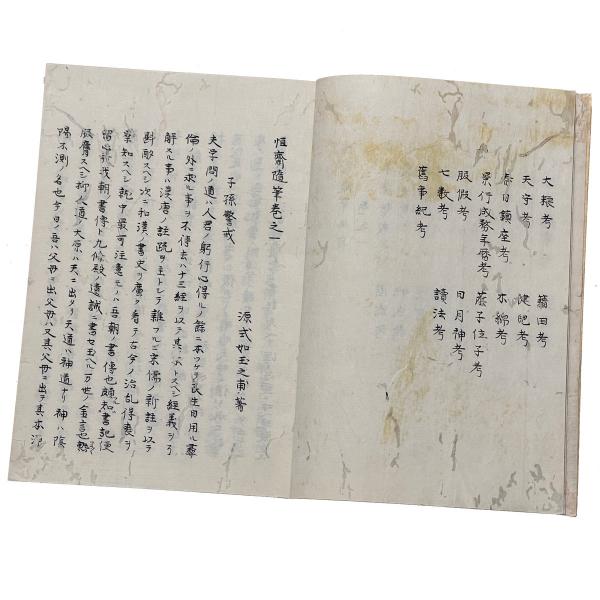 大糦考
天守考
春日鎮座考
景行成務年暦考
服假考
七數考
舊事紀考
籍田考
健児考
木綿考
蔭子位子考
日月神考
讀法考
恒齋隨筆巻之一
源式如玉之甫著
子孫警戒
夫学問ノ道ハ人君ノ躬行心得ルノ餘ニ本ツケテ民生日用ル彝
倫ノ外ニ求ル事ヲ不俟去ハ十三経ヲ以テ其ノ本トスヘシ経義ヲ
解スル事ハ漢唐ノ註疏ヲ主トシテ雜フルニ宋儒ノ新註ヲ以テ
斟酌スヘシ次ニ和漢ノ書史ヲ廣ク看テ古今ノ治乱得喪ヲ
察知スヘシ就中最可注意モノハ吾朝ノ書傳也頗知書記便
留心於我朝書傳ト九條殿ノ遺誡ニ書セ玉ヘル万世ノ金言也熟
服膺スヘシ抑人道ノ大原ハ天ニ出タリ天道ハ神道ナリ神ハ陰
陽不測ノ名也今日ノ吾ハ父母ニ出父母ハ又其父母ニ出ツ其本源